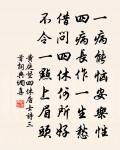 一病能惱安樂性
四病長作一生愁
借問四休何所好
不令一點上眉頭
黃庭堅四休居士詩三
首詞典